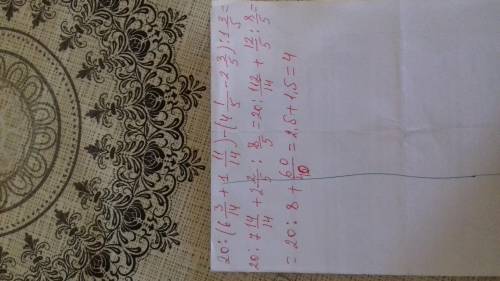 20:(6 3/14 + 1 11/14) - (4 1/5 - 2 3/5) : 1 3/5 =
20 : 7 14/14 + 2 2/5 : 8/5 = 20 : 112/14 + 12/5 : 8/5 =
= 20 : 8 + 60/40 = 2,5 + 1,5 = 4